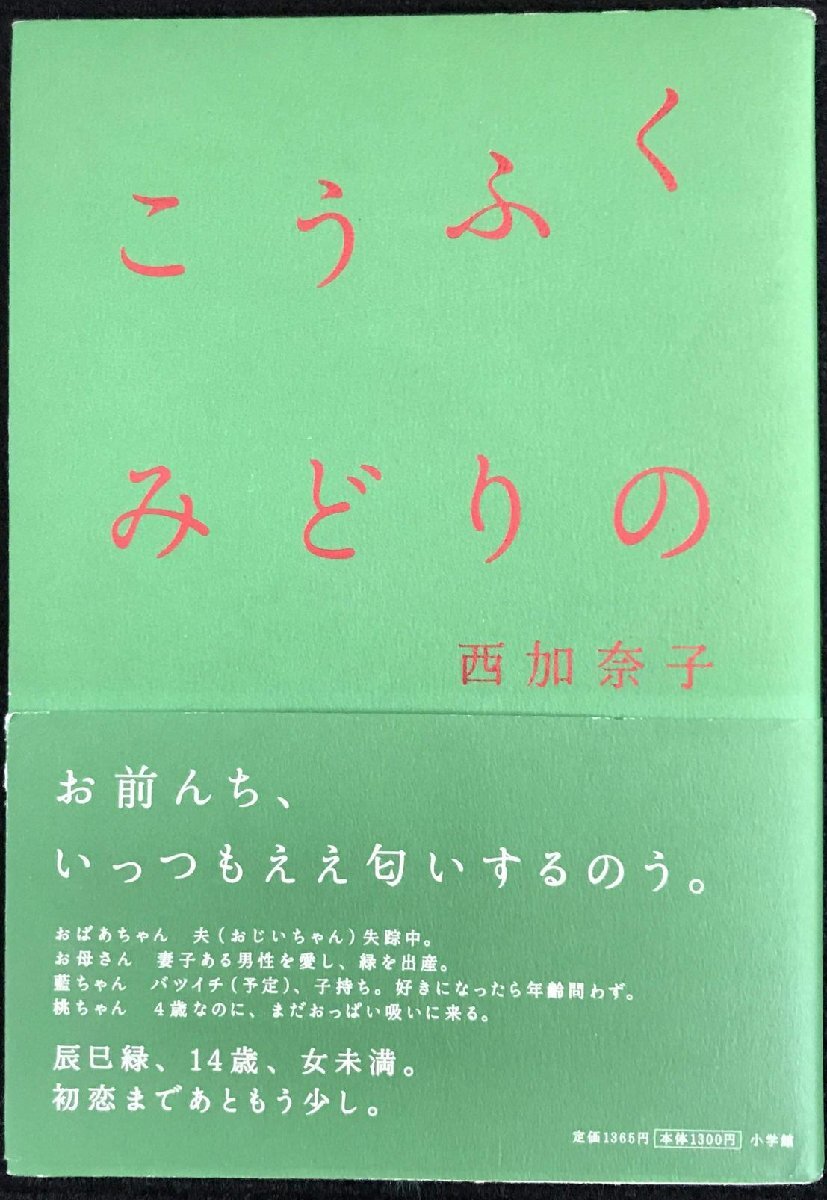 こうふく
みどりの
西加奈子
お前んち、
いっつもええ匂いするのう。
おばあちゃん　夫（おじいちゃん）失踪中。
お母さん　妻子ある男性を愛し、緑を出産。
藍ちゃん　バツイチ（予定）、子持ち。好きになったら年齢問わず。
桃ちゃん　４歳なのに、まだおっぱい吸いに来る。
辰巳緑、14歳、女未満。
初恋まであともう少し。
定価1365円 本体1300円 小学館